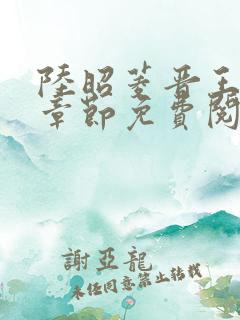 陸昭菱晋王
章節免費閱
謝亞龍
未經同意禁止轉載